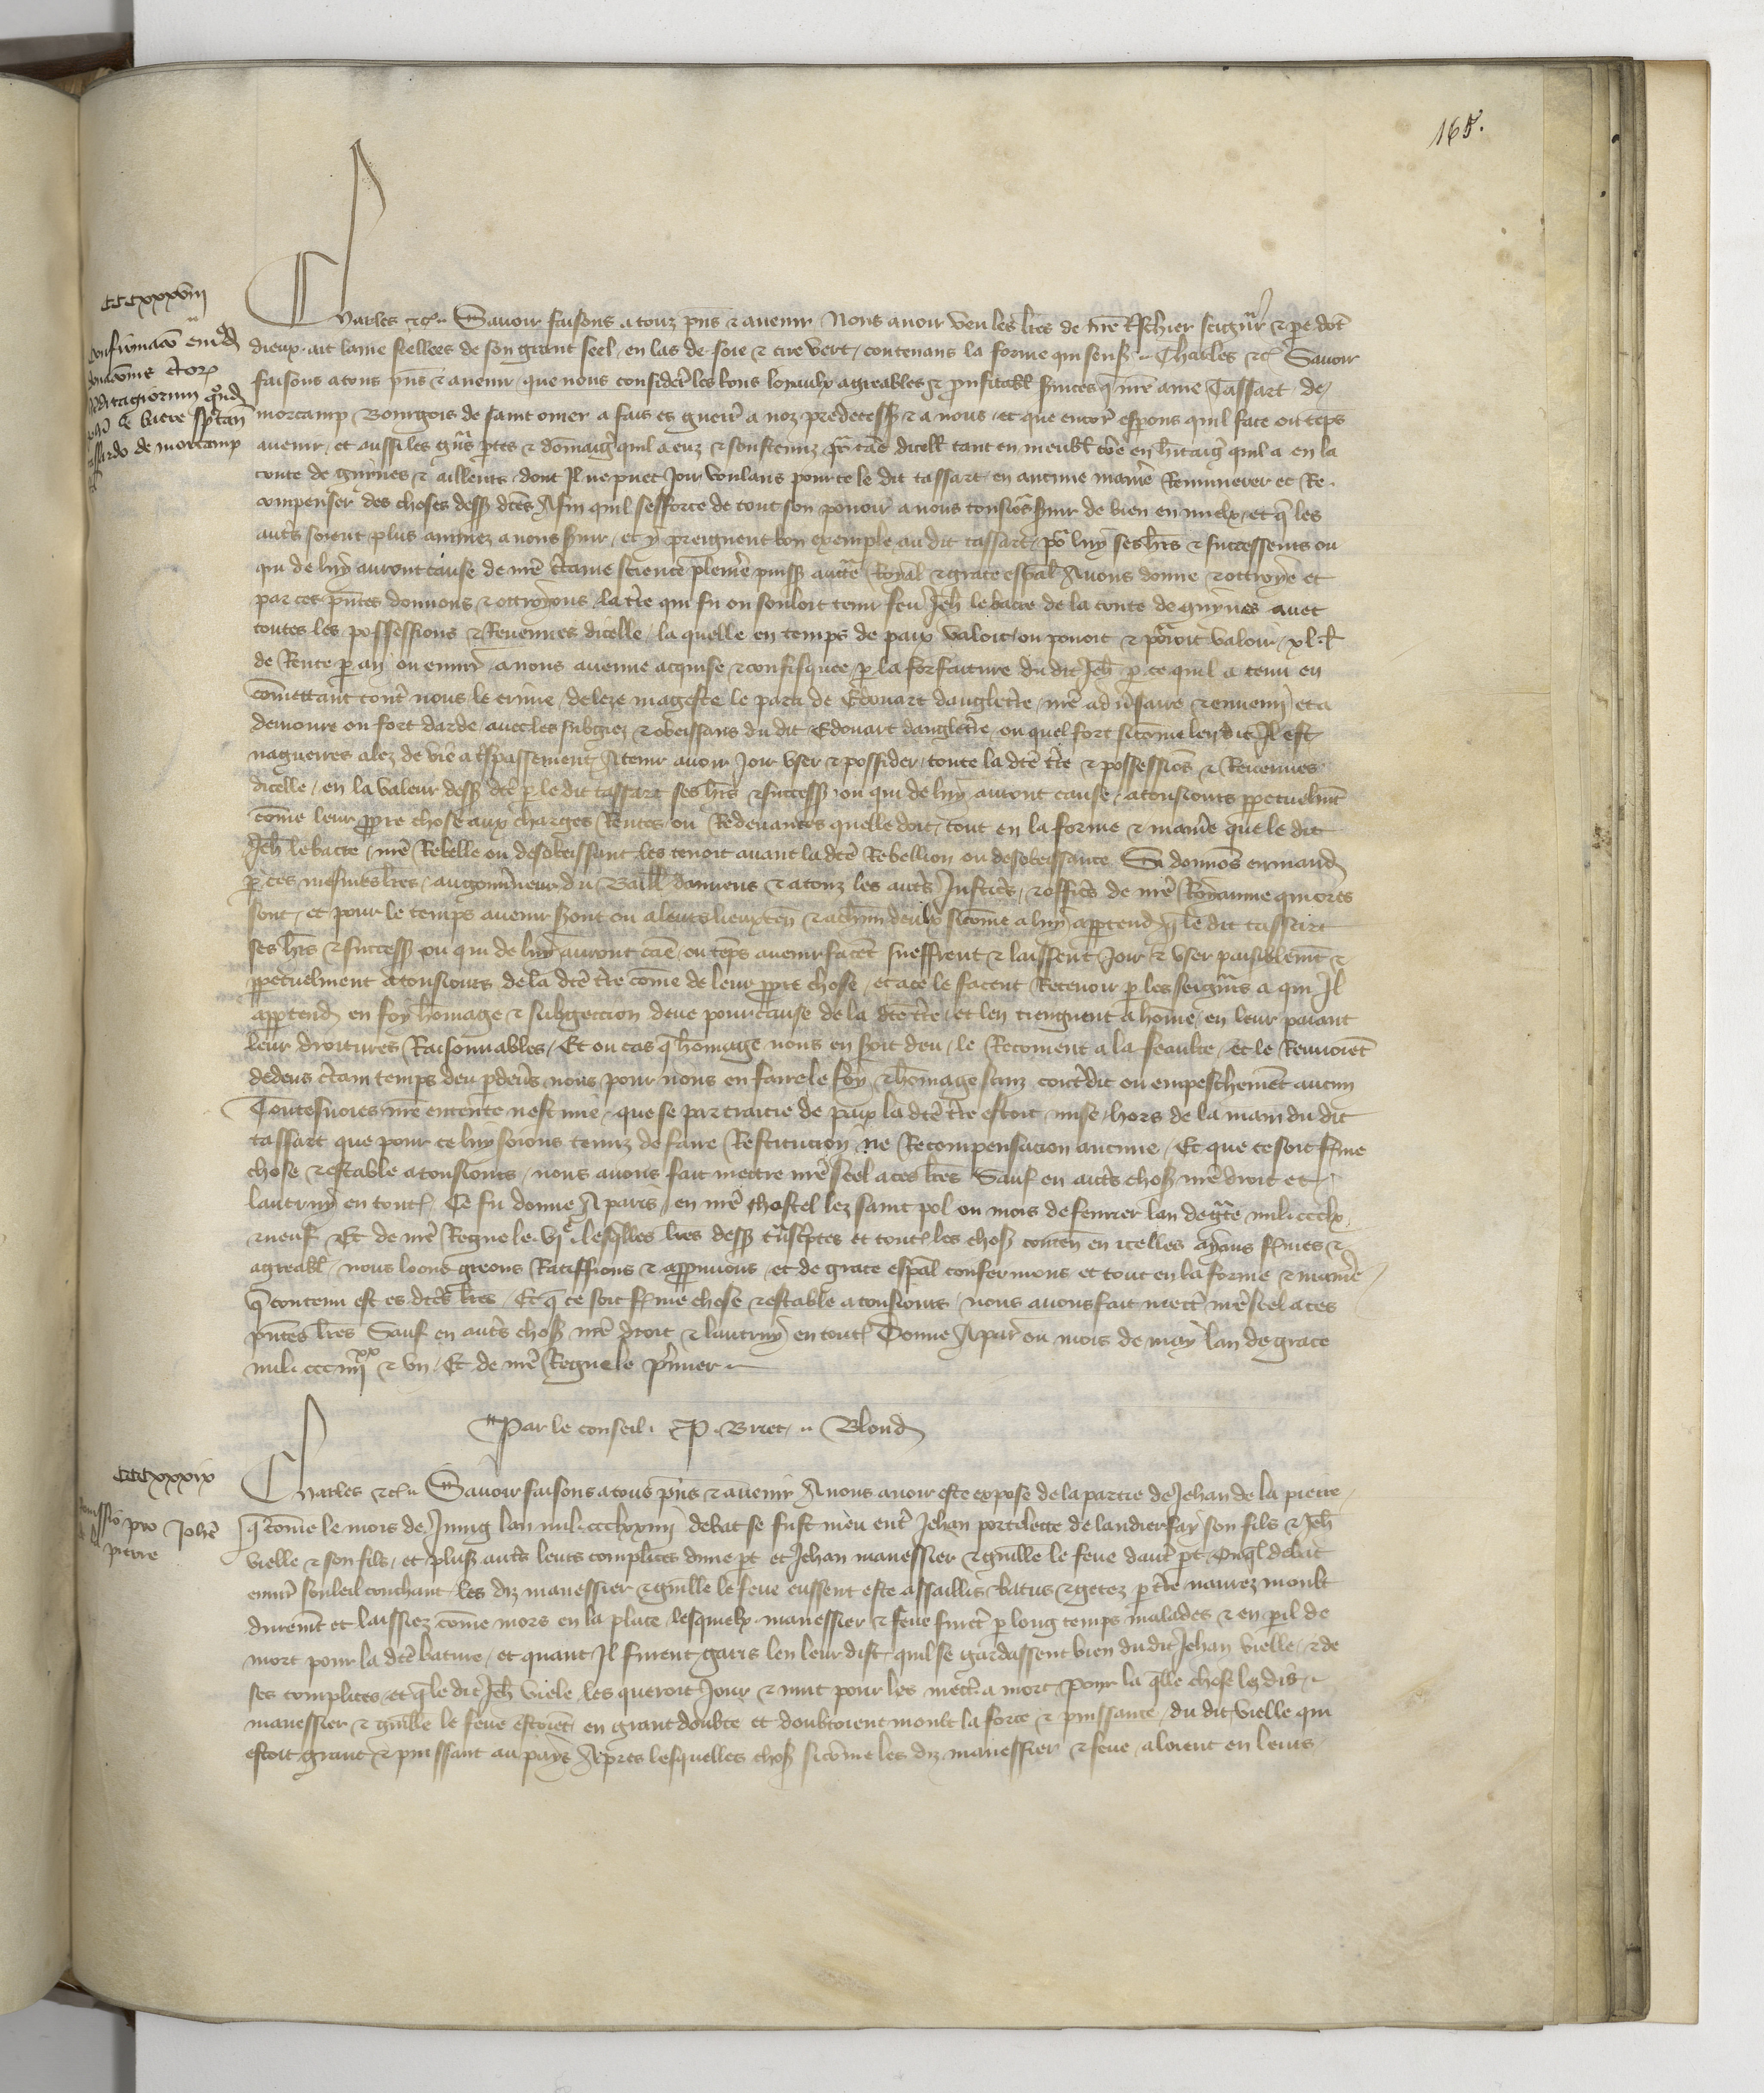 165.
CCCxxxviij
confirmacō
donacōnis ctorꝫ
hereditagiorum qond
le bacre
tassardo de morcamp
Charles etc̄ Sauoir faisons a touz pn̄s ⁊ auenir Nous auoir veu les lr̄es de nr̄e tschier seignr̄ ⁊ pe dōt
dieux ait lame seellees de son grant seel en las de soie ⁊ cire vert contenans la forme qui senß Charles etc̄ Sauoir
faisons a tous pn̄s ⁊ auenir que nous considere les bons loyaulx agreables ⁊ proufitabl suices q̄ nr̄e ame Tassart de
morcamp Bourgois de saint omer a fais es guerr a noz predecess ⁊ a nous et que encor esp̄ons quil face ou tēps
auenir et aussi les gn̄s ptes ⁊ dōmaig quil a euz ⁊ soustenuz pr cāe dicell tant en meubl cōe en h̄itaig quil a en la
conte de guynes ⁊ ailleurs dont Il ne puet Joir voulans pour ce le dit tassart en aucune manie Remunerer et Re
compenser des choses dess dcēs Afin quil sefforce de tout son pouoir a nous tousios suir de bien en mielx et q̄ les
aut̄s soient plus animez a nous suir et y preignent bon exemple au dit tassart po luy ses h̄rs ⁊ successeurs ou
qui de luy auront cause de nr̄e c̄taine science plen̄e puiss auct̄e Royal ⁊ grace esp̄al Auons donne ⁊ ottroye et
par ces pn̄tes donnons ⁊ ottroyons la t̄re qui fu ou souloit tenir feu Jeh̄ le bacre de la conte de guynes auec
toutes les possessions ⁊ Reuenues dicelle la quelle en temps de paix valoit ou pouoit ⁊ po̅roit valoir xl. l.
de Rente p an ou enuir̄ a nous auenue acquise ⁊ confisquee p la forfaiture du dit Jeh̄ p ce quil a tenu en
cōmettant cont̄ nous le crime deleze mageste le parti de Edouart dangletr̄e nr̄e aduersaire ⁊ ennemi et a
demoure ou fort darde auec les subgiez ⁊ obeissans du dit Edouart dangletr̄e ou quel fort sicōme len dit Il est
nagueires alez de vie a tspassement A tenir auoir Joir vser ⁊ possider toute la dc̄e tr̄e ⁊ possessiōs ⁊ Reuenues
dicelle en la valeur dess dc̄e p le dit tassart ses h̄rs ⁊ success ou qui de luy auront cause a tousiours ppetuelmt
cōme leur ppre chose aux charges Rentes ou Redeuances quelle doit tout en la forme ⁊ manie que le dit
Jeh̄ le bacre nr̄e Rebelle ou desobeissant les tenoit auant la dc̄e Rebellion ou desobeissance Si donnōs en mand
p ces mesmes lr̄es au gouūneur du Baill damiens ⁊ a touz les aut̄s Justic̄s ⁊ offic̄s de nr̄e Royaume qui ores
sont et pour le temps auenir seront ou a leurs lieuxten̄ ⁊ a chūn deulx sicōme a luy apptend q̄ le dit tassart
ses h̄rs ⁊ success ou qui de luy auront cāe en tēps auenir facēt sueffrent ⁊ laissent Joir ⁊ vser paisiblemt̄ ⁊
ppetuelment a tousiours de la dc̄e tr̄e cōme de leur ppre chose et a ce le facent Receuoir p les seignr̄s a qui Il
apptend en foy homage ⁊ subgeccion deue pour cause de la dc̄e tr̄e et len tiengnent a hōme en leur paiant
leur droitures Raisonnables Et ou cas q̄ hōmage nous en seroit deu le Recoiuent a la feaulte et le Renuoiēt
dedens c̄tain temps deu p deūs nous pour nous en faire le foy ⁊ hōmage sanz cont̄dit ou empeschement aucun
Toutesuoies nr̄e entente nest mie que se par traictie de paix la dc̄e tr̄e estoit mise hors de la main du dit
tassart que pour ce luy soions tenuz de faire Restitucion ne Recompensacion aucune Et que ce soit fme
chose ⁊ estable a tousiours nous auons fait mettre nr̄e seel a ces lr̄es Sauf en aut̄s chos nr̄e droit et
lautruy en tout Ce fu donne A paris en nr̄e hostel lez saint pol ou mois de feurier lan de gr̄ce mil. ccclx
⁊ neuf Et de nr̄e Regne le vjᵉ lesqlles lr̄es dess t̄nscptes et tout les chos conten̄ en icelles ayans fmes ⁊
agreabl nous loons greons Ratiffions ⁊ appuuons et de grace esp̄al confermons et tout en la forme ⁊ manie
q̄ contenu est es dc̄es lr̄es Et q̄ ce soit fme chose ⁊ estable a tousiours nous auons fait mectr̄ nr̄e seel a ces
pn̄tes lr̄es Sauf en aut̄s chos nr̄e droit ⁊ lautruy en tout Donne A par̄ ou mois de may lan de grace
mil. ccc iiijˣˣ ⁊ vn Et de nr̄e Regne le p̄mier
Par le conseil. P. Briet. Blond
CCCxxxix
Remissio pro Johē
de la pierre
Charles etc̄ Sauoir faisons a tous pn̄s ⁊ auenir A nous auoir este expose de la partie de Jehan de la pierre
q̄ cōme le mois de Juing lan mil. ccclxxiiij debat se fust meu ent̄ Jehan portelette de landierfay son fils ⁊ Jeh̄
vielle ⁊ son fils et plus aut̄s leurs complices dune pt et Jehan manessier ⁊ guille le feue daut̄ pt Ouql debat
enuir̄ souleil couchant les diz manessier ⁊ guille le feue eussent este assaillis batus ⁊ getez p tr̄e naurez moult
duremt̄ et laissiez cōme mors en la place lesquielx manessier ⁊ feue furet̄ p long temps malades ⁊ en pil de
mort pour la dc̄e bature et quant Il furent garis len leur dist quil se gardassent bien du dit Jehan vielle ⁊ de
ses complices et q̄ le dit Jeh̄ viele les queroit Jour ⁊ nuit pour les mectr̄ a mort Pour la qlle chose lez dis
manessier ⁊ guille le feue estoiēt en grant doubte et doubtoient moult la force ⁊ puissance du dit vielle qui
estoit grant ⁊ puissant au pays Apres lesquelles chos sicōme les diz manessier ⁊ feue aloient en leurs